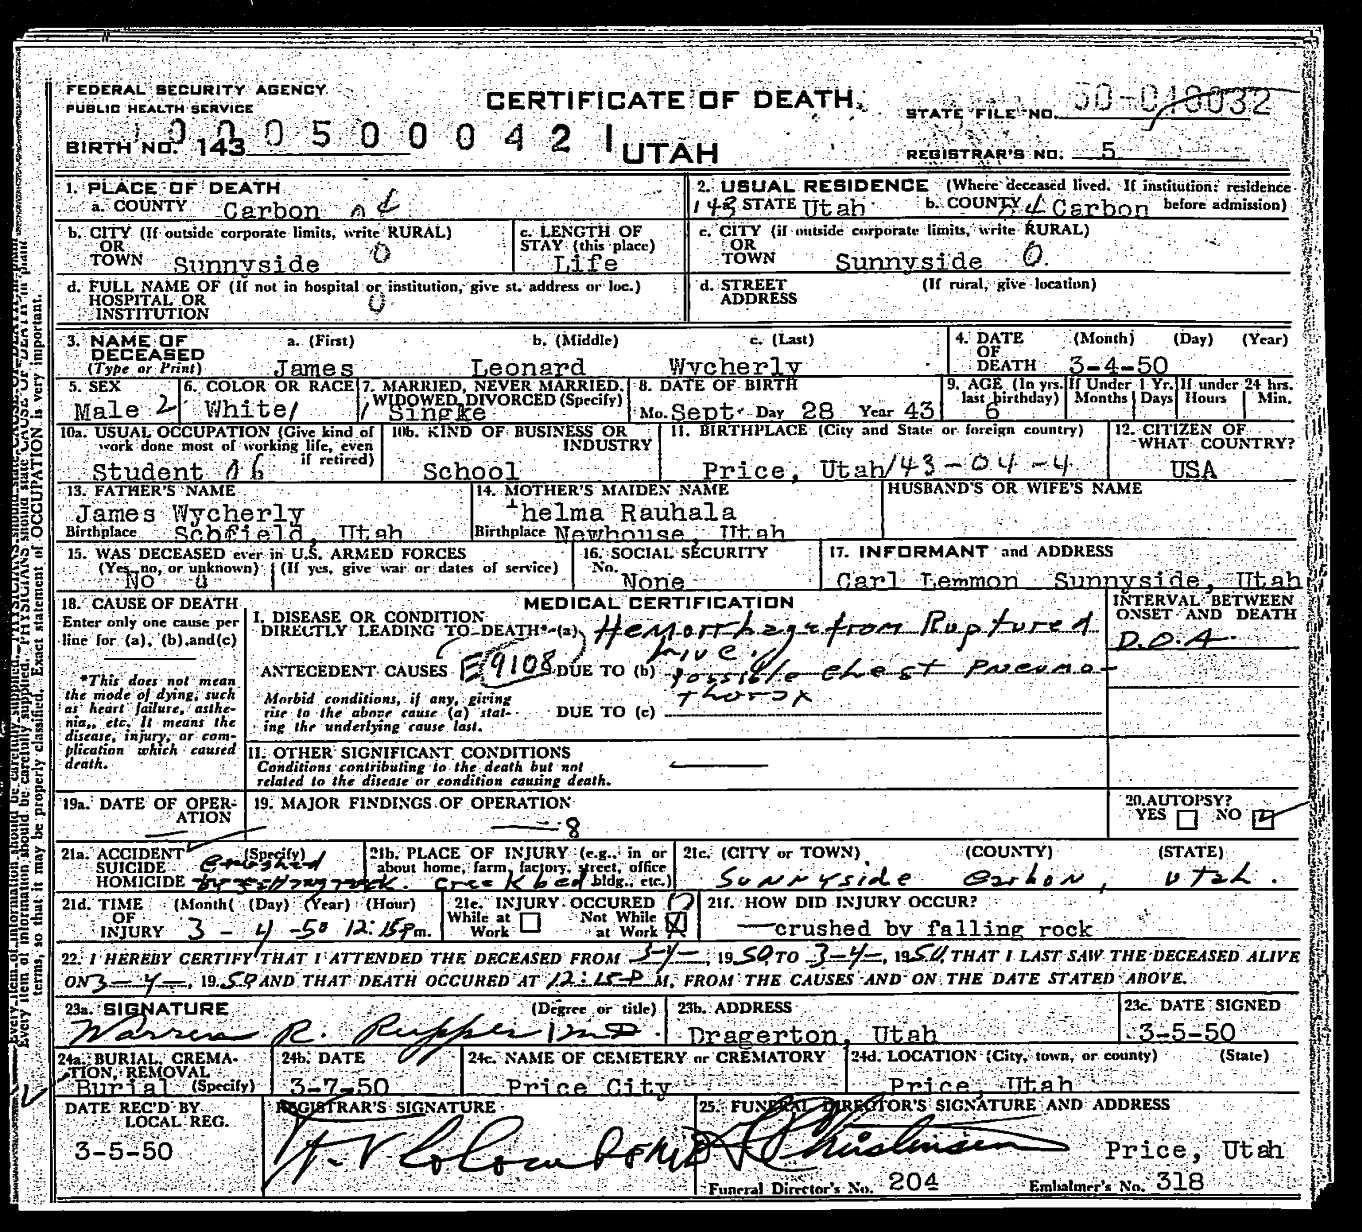 FEDERAL SECURITY AGENCY
PUBLIC HEALTH SERVICE
CERTIFICATE OF DEATH
STATE FILE NO. 50-018032
BIRTH NO. 143
0005000421
UTAH
REGISTRAR'S NO. 5
1. PLACE OF DEATH
a. COUNTY Carbon
2. USUAL RESIDENCE (Where deceased lived. If institution: residence before admission)
143 STATE Utah b. COUNTY Carbon
b. CITY (If outside corporate limits, write RURAL) OR TOWN Sunnyside 0
c. LENGTH OF STAY (this place) Life
c. CITY (if outside corporate limits, write RURAL) OR TOWN Sunnyside 0
d. FULL NAME OF (If not in hospital or institution, give st. address or loc.) HOSPITAL OR INSTITUTION 0
d. STREET ADDRESS (If rural, give location)
3. NAME OF DECEASED (Type or Print)
a. (First) James
b. (Middle) Leonard
c. (Last) Wycherly
4. DATE OF DEATH (Month) (Day) (Year) 3-4-50
5. SEX Male 2
6. COLOR OR RACE White 1
7. MARRIED, NEVER MARRIED, WIDOWED, DIVORCED (Specify) 1 Singke
8. DATE OF BIRTH Mo. Sept Day 28 Year 43
9. AGE (In yrs. last birthday) 6
If Under 1 Yr. Months Days
If under 24 hrs. Hours Min.
10a. USUAL OCCUPATION (Give kind of work done most of working life, even if retired) Student 06
10b. KIND OF BUSINESS OR INDUSTRY School
11. BIRTHPLACE (City and State or foreign country) Price, Utah 143-04-4
12. CITIZEN OF WHAT COUNTRY? USA
13. FATHER'S NAME James Wycherly
Birthplace Schfield, Utah
14. MOTHER'S MAIDEN NAME Thelma Rauhala
Birthplace Newhouse, Utah
HUSBAND'S OR WIFE'S NAME
15. WAS DECEASED ever in U.S. ARMED FORCES (Yes, no, or unknown) (If yes, give war or dates of service) No 0
16. SOCIAL SECURITY No. None
17. INFORMANT and ADDRESS Carl Lemmon Sunnyside, Utah
18. CAUSE OF DEATH
Enter only one cause per line for (a), (b), and (c)
*This does not mean the mode of dying, such as heart failure, asthenia, etc. It means the disease, injury, or complication which caused death.
MEDICAL CERTIFICATION
I. DISEASE OR CONDITION DIRECTLY LEADING TO DEATH* (a) Hemorrhage from Ruptured
ANTECEDENT CAUSES E9108 DUE TO (b) possible chest Pneumothorax
Morbid conditions, if any, giving rise to the above cause (a) stating the underlying cause last.
DUE TO (c)
INTERVAL BETWEEN ONSET AND DEATH
D.O.A.
II. OTHER SIGNIFICANT CONDITIONS
Conditions contributing to the death but not related to the disease or condition causing death.
19a. DATE OF OPERATION
19. MAJOR FINDINGS OF OPERATION 8
20. AUTOPSY? YES NO
21a. ACCIDENT SUICIDE HOMICIDE (Specify) crushed
21b. PLACE OF INJURY (e.g., in or about home, farm, factory, street, office bldg., etc.) creek bed
21c. (CITY or TOWN) (COUNTY) (STATE)
Sunnyside Carbon, Utah.
21d. TIME OF INJURY (Month) (Day) (Year) (Hour) 3-4-50 12:15 Pm.
21e. INJURY OCCURED While at Work Not While at Work
21f. HOW DID INJURY OCCUR?
crushed by falling rock
22. I HEREBY CERTIFY THAT I ATTENDED THE DECEASED FROM 3-4-, 1950 TO 3-4-, 1950, THAT I LAST SAW THE DECEASED ALIVE
ON 3-4-, 1950 AND THAT DEATH OCCURED AT 12:15 P M, FROM THE CAUSES AND ON THE DATE STATED ABOVE.
23a. SIGNATURE (Degree or title)
Warren R. Rupper MD.
23b. ADDRESS Dragerton, Utah
23c. DATE SIGNED 3-5-50
24a. BURIAL, CREMATION, REMOVAL (Specify) Burial
24b. DATE 3-7-50
24c. NAME OF CEMETERY or CREMATORY Price City
24d. LOCATION (City, town, or county) (State) Price, Utah
DATE REC'D BY LOCAL REG. 3-5-50
REGISTRAR'S SIGNATURE
25. FUNERAL DIRECTOR'S SIGNATURE AND ADDRESS
Christensen Price, Utah
Funeral Director's No. 204 Embalmer's No. 318